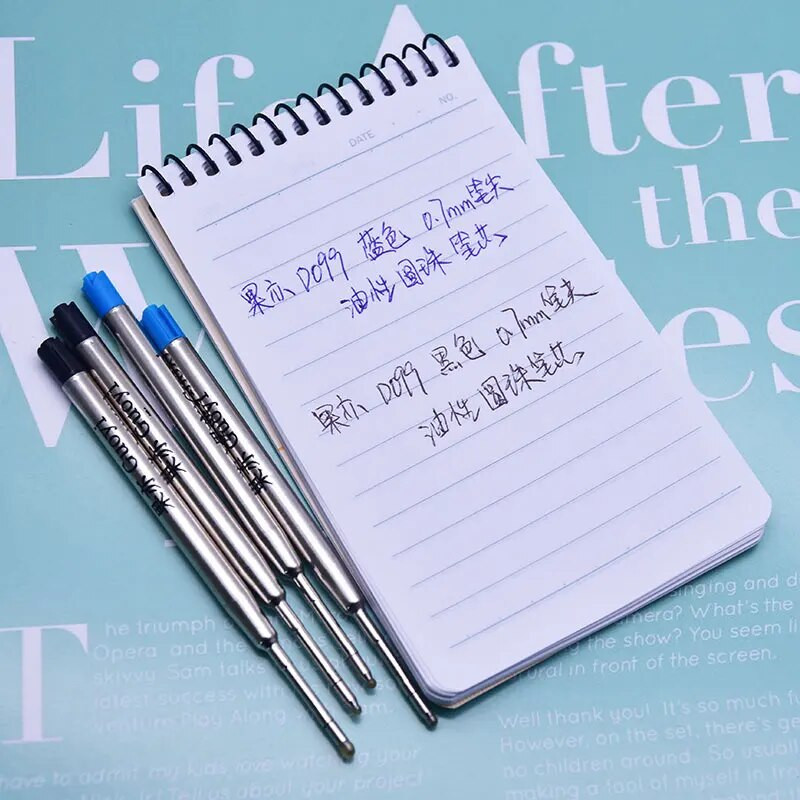 Life After
the
DATE
NO.
果亦 D099 蓝色 0.7mm笔尖
油性圆珠笔芯
果亦 D099 黑色 0.7mm笔尖
油性圆珠笔芯
果亦 Guoyi
果亦 Guoyi
果亦 Guoyi
The triumph
Opera and the
skivvy. Sam talks
latest success with
venture Play Along
have to admit my kids love watching your
Tell us about your project
singing and
camera? What's the
the show? You seem
natural in front of the screen.
Well thank you! It's so much
However, on the set, there's
no children around. So usual
making a fool of myself in